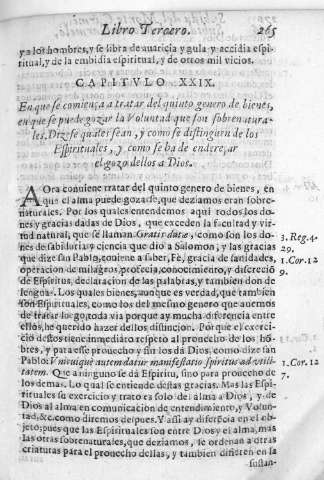 Libro Tercero. 265
y a los hombres, y se libra de auaricia y gula y accidia espi-
ritual, y de la embidia espiritual, y de otros mil vicios.
CAPITVLO XXIX.
En que se comiença a tratar del quinto genero de bienes,
en que se puede gozar la Voluntad que son sobrenatura-
les. Dize quales sean, y como se distinguen de los
Espirituales, y como se ha de endereçar
el gozo dellos a Dios.
AOra conuiene tratar del quinto genero de bienes, en
que el alma puede gozarse, que deziamos eran sobre-
naturales. Por los quales entendemos aqui todos los do-
nes y gracias dadas de Dios, que exceden la facultad y vir-
tud natural, que se llaman Gratis datas, como son los do-
nes de sabiduria y ciencia que dio a Salomon, y las gracias
que dize san Pablo, conuiene a saber, Fè, gracia de sanidades,
operacion de milagros, profecia, conocimiento, y discreciõ
de Espiritus, declaracion de las palabras, y tambien don de
lenguas. Los quales bienes, aunque es verdad, que tambien
son Espirituales, como los del mesmo genero que auemos
de tratar luego, toda via porque ay mucha diferencia entre
ellos, he querido hazer dellos distincion. Por que el exerci-
cio destos tiene inmediato respeto al prouecho de los hõ-
bres, y para esse prouecho y fin los dà Dios, como dize san
Pablo: Vnicuique autem datur manifestatio spiritus ad vtili-
tatem. Que a ninguno se dà Espiritu, sino para prouecho de
los demas. Lo qual se entiende destas gracias. Mas las Espi-
rituales su exercicio y trato es solo del alma a Dios, y de
Dios al alma en comunicacion de entendimiento, y Volun-
tad, &c. como diremos despues. Y assi ay diferencia en el ob-
jeto; pues que las Espirituales son entre Dios y el alma, mas
las otras sobrenaturales, que deziamos, se ordenan a otras
criaturas para el prouecho dellas, y tambien difieren en la
sustan-
3. Reg. 4.
29.
1. Cor. 12
9.
1. Cor. 12
7.